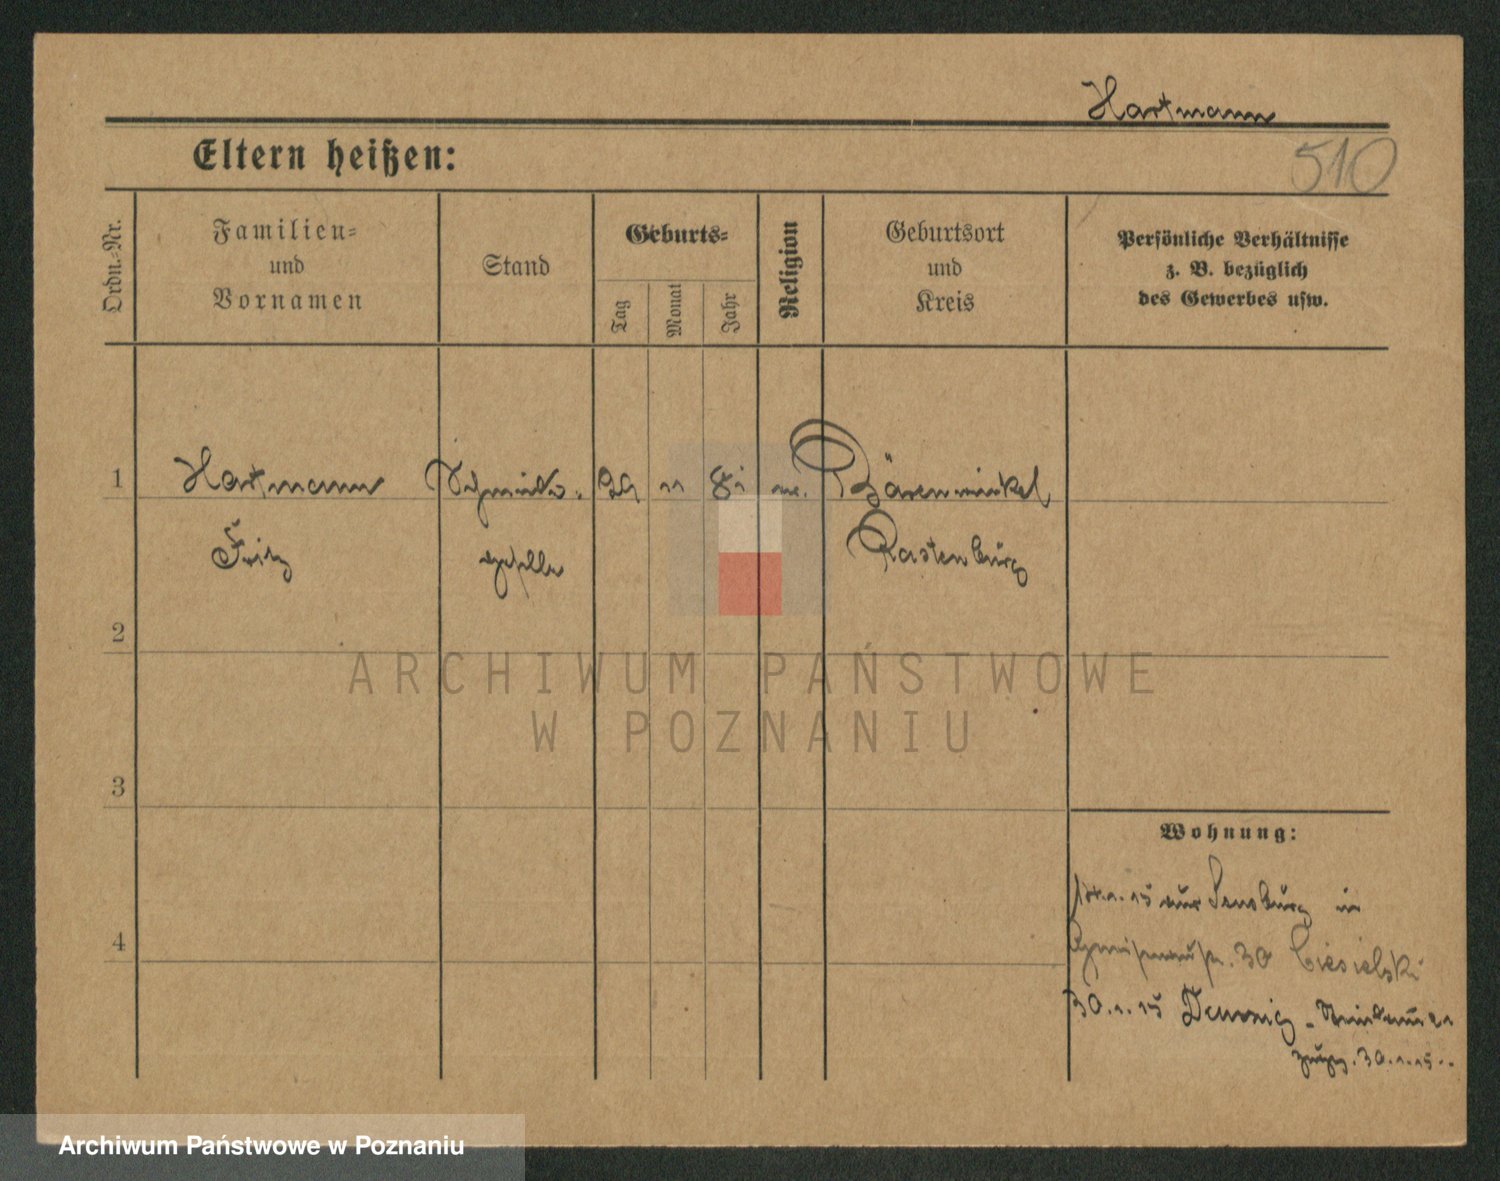 Hartmann
510
Eltern heißen:
Ordn.-Nr.
Familien-
und
Vornamen
Stand
Geburts-
Tag
Monat
Jahr
Religion
Geburtsort
und
Kreis
Persönliche Verhältnisse
z. B. bezüglich
des Gewerbes usw.
1 Hartmann 11 Bärenwinkel
Fritz geselle Rastenburg
2
ARCHIWUM PAŃSTWOWE
W POZNANIU
3
Wohnung:
15 aus Sensburg in
4
30 Ciesielski
30.1.15
30.1.15
Archiwum Państwowe w Poznaniu